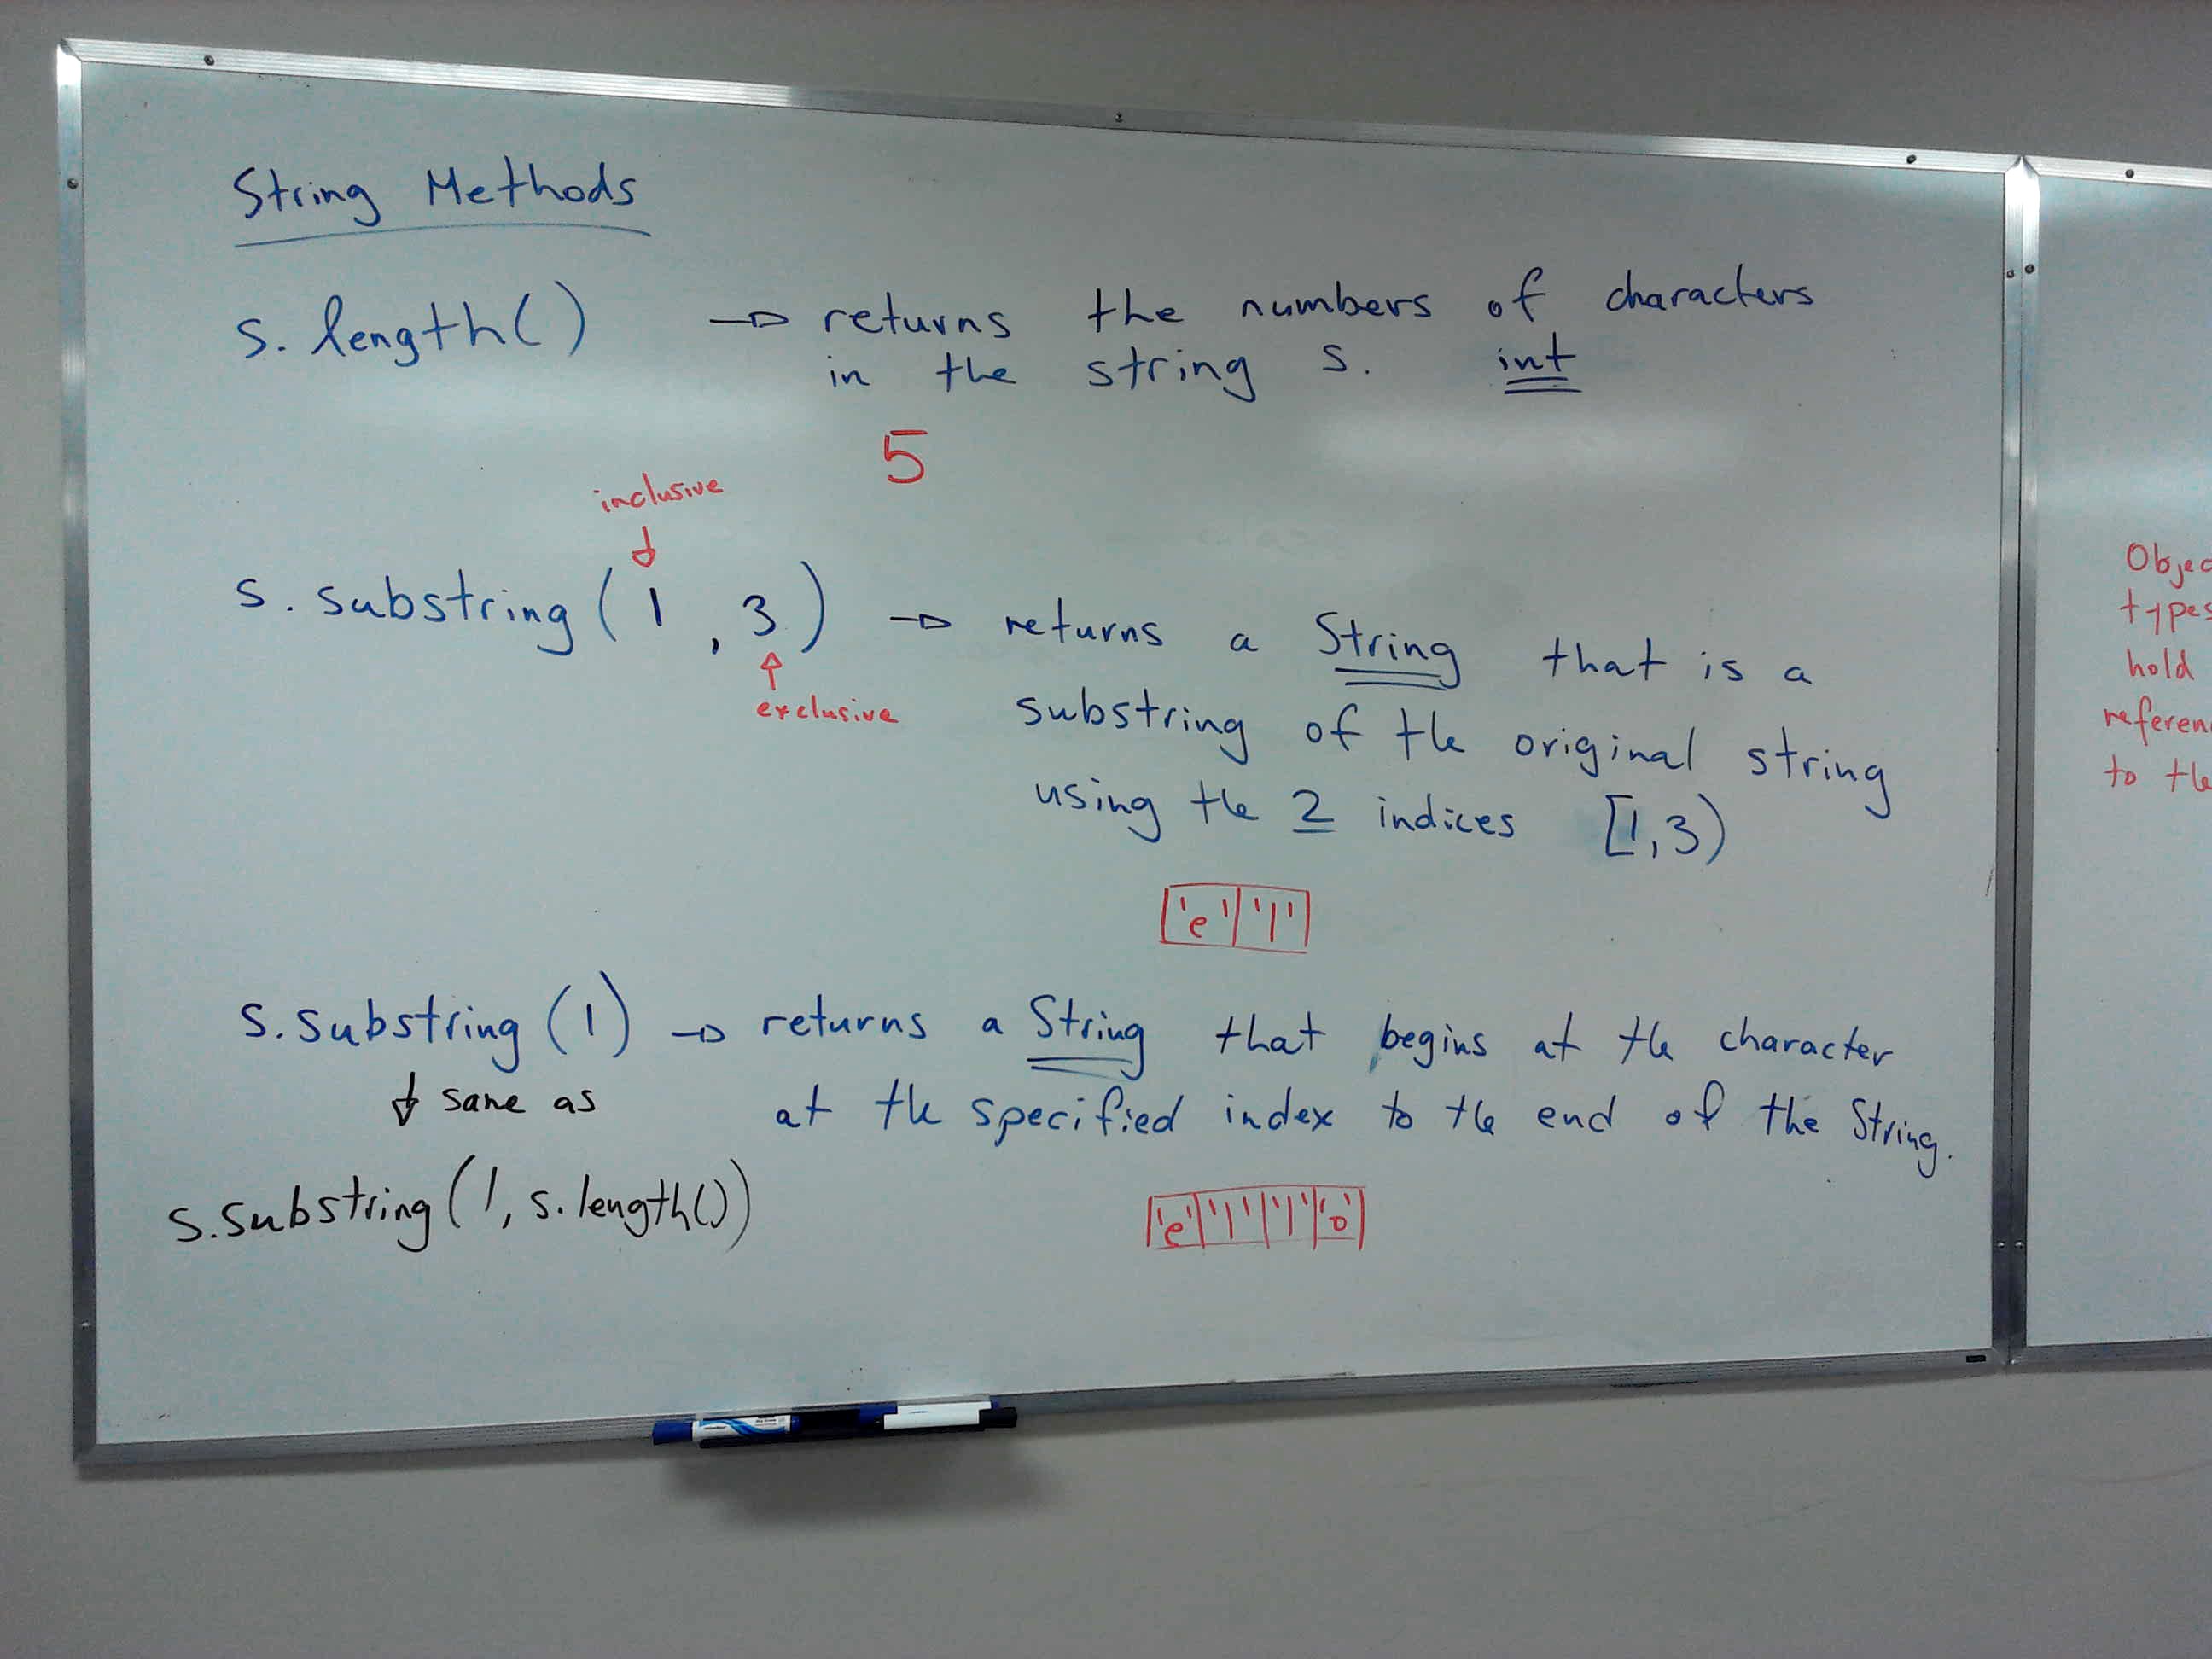 String Methods
s.length() → returns the numbers of characters
in the string s. int
5
inclusive
↓
s.substring(1, 3) → returns a String that is a
↑
exclusive
substring of the original string
using the 2 indices [1,3)
'e' 'l'
s.substring(1) → returns a String that begins at the character
↓ same as
at the specified index to the end of the String.
s.substring(1, s.length())
'e' 'l' 'l' 'o'
Objec
types
hold
referen
to the